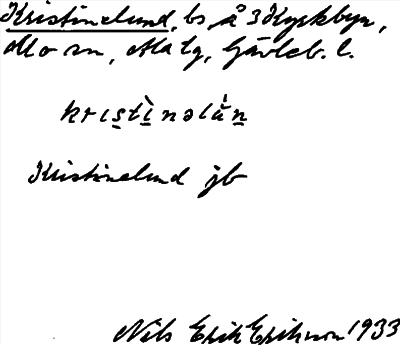 Kristinelund, bs å 3 Kyrkbyn,
Mo sn, Ala tg, Gävleb. l.
kristìnəlún
Kristinelund jb
Nils Erik Erikson 1933